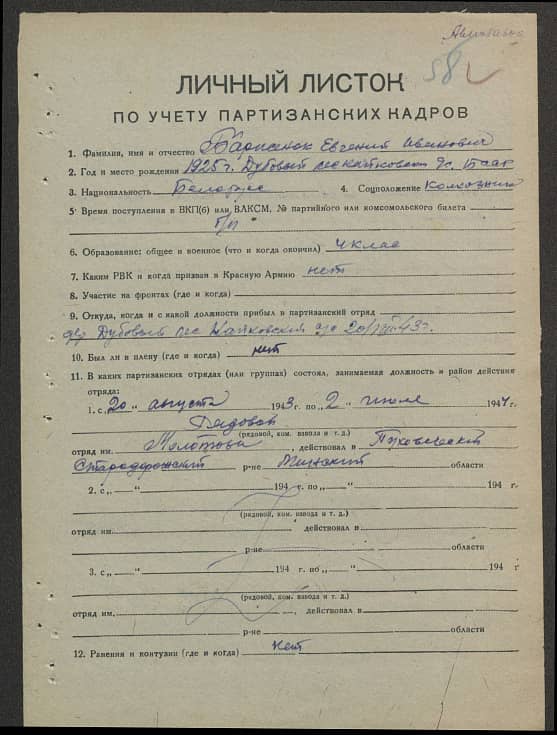 58
ЛИЧНЫЙ ЛИСТОК
ПО УЧЕТУ ПАРТИЗАНСКИХ КАДРОВ
1. Фамилия, имя и отчество Евгений Иванович
2. Год и место рождения 1925 г. Дубовый лес
3. Национальность Белорус 4. Соцположение Колхозник
5. Время поступления в ВКП(б) или ВЛКСМ, № партийного или комсомольского билета
б/п
6. Образование: общее и военное (что и когда окончил) 4 клас
7. Каким РВК и когда призван в Красную Армию нет
8. Участие на фронтах (где и когда)
9. Откуда, когда и с какой должности прибыл в партизанский отряд
дер Дубовый лес
10. Был ли в плену (где и когда) нет
11. В каких партизанских отрядах (или группах) состоял, занимаемая должность и район действия
отряда:
1. с „20 „ августа 1943 г. по „2 „ июля 1944 г.
Рядовой
(рядовой, ком. взвода и т. д.)
отряд им. Молотова, действовал в Пуховический
Стародорожский р-не Минский области
2. с „ “ 194 г. по „ “ 194 г.
(рядовой, ком. взвода и т. д.)
отряд им. действовал в
р-не области
3. с „ “ 194 г. по „ “ 194 г.
(рядовой, ком. взвода и т. д.)
отряд им. , действовал в
р-не области
12. Ранения и контузии (где и когда) Нет